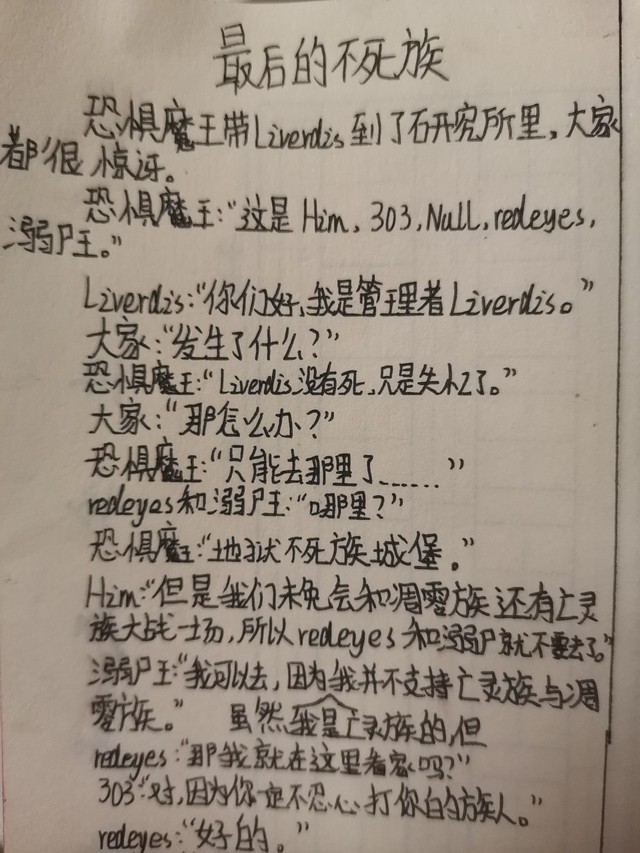 最后的不死族
恐惧魔王带Liverdis到了研究所里，大家
都很惊讶。
恐惧魔王：“这是Him，303，Null，redeyes，
溺尸王。”
Liverdis：“你们好，我是管理者Liverdis。”
大家：“发生了什么？”
恐惧魔王：“Liverdis没有死，只是失忆了。”
大家：“那怎么办？”
恐惧魔王：“只能去那里了……”
redeyes和溺尸王：“哪里？”
恐惧魔王：“地狱不死族城堡。”
Him：“但是我们未免会和凋零族还有亡灵
族大战一场，所以redeyes和溺尸就不要去了。”
溺尸王：“我可以去，因为我并不支持亡灵族与凋
零族。” 虽然我是亡灵族的，但
redeyes：“那我就在这里看家吗？”
303：“对，因为你一定不忍心打你自的族人。”
redeyes：“好的。”